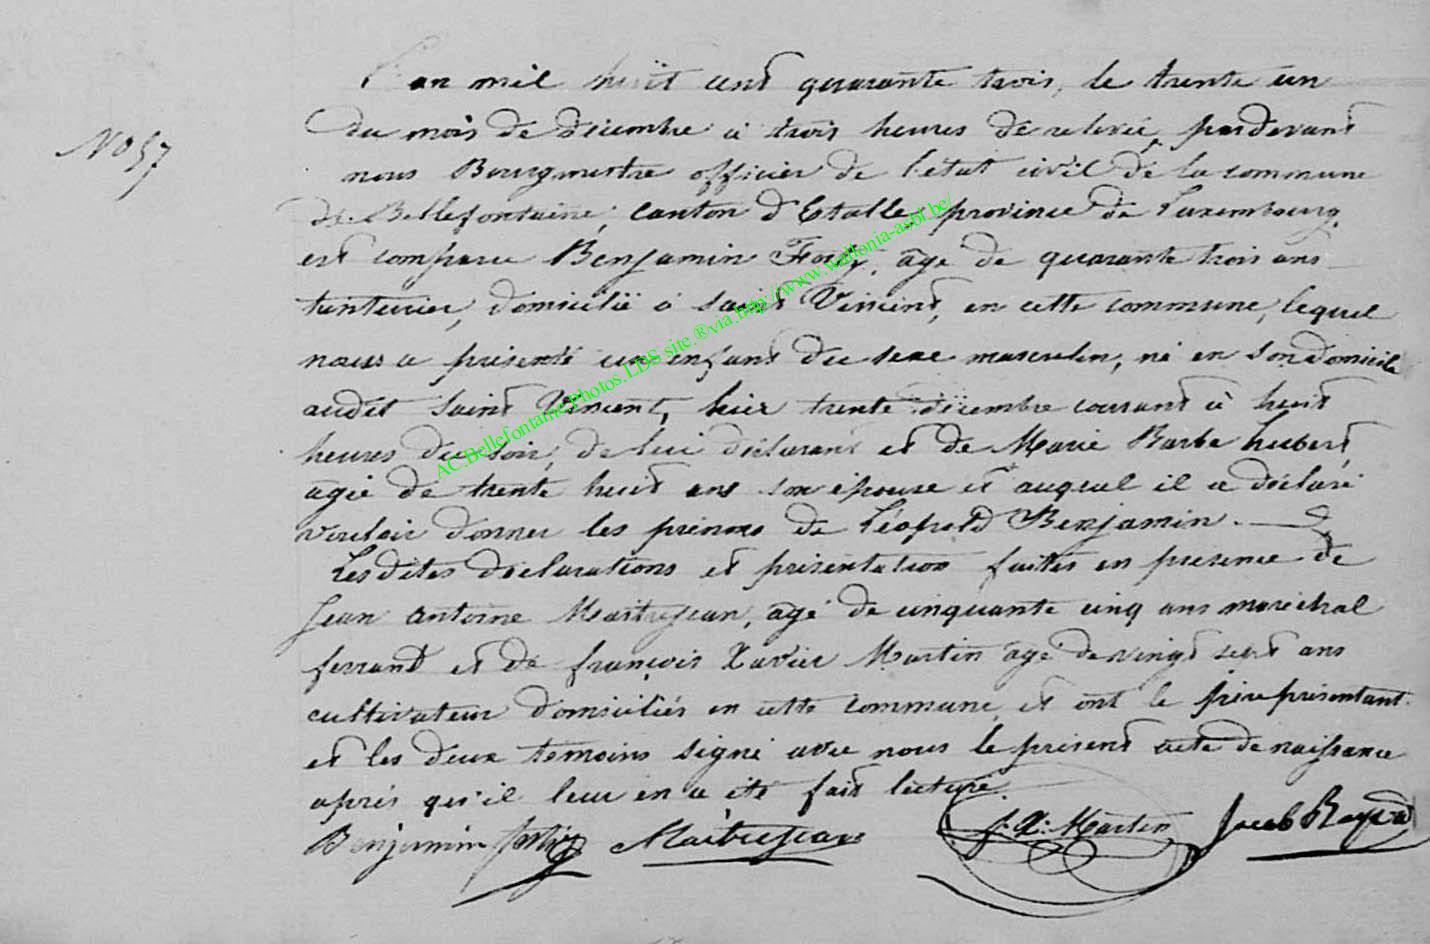 L'an mil huit cent quarante trois, le trente un
No 57
du mois de décembre à trois heures de relevée, pardevant
nous Bourgmestre officier de l'état civil de la commune
de Bellefontaine, canton d'Etalle, province de Luxembourg,
est comparu Benjamin âgé de quarante trois ans
teinturier, domicilié à Saint Vincent, en cette commune, lequel
nous a présenté un enfant du sexe masculin, né en son domicile
audit Saint Vincent, hier trente décembre courant à huit
heures du soir, de lui déclarant et de Marie Barbe hubert,
agée de trente huit ans son épouse et auquel il a déclaré
vouloir donner les prénoms de Léopold Benjamin.
Lesdites déclarations et présentation faites en présence de
Jean Antoine Maitrejean, agé de cinquante cinq ans maréchal
ferrant et de françois Xavier Martin agé de vingt sept ans
cultivateur domiciliés en cette commune, et ont le père présentant
et les deux témoins signé avec nous le présent acte de naissance
après qu'il leur en a été fait lecture.
Benjamin Maitrejean f. X. Martin Jacob
AC.Bellefontaine.Photos.LDS site.®via.http://www.wallonia-asbl.be/